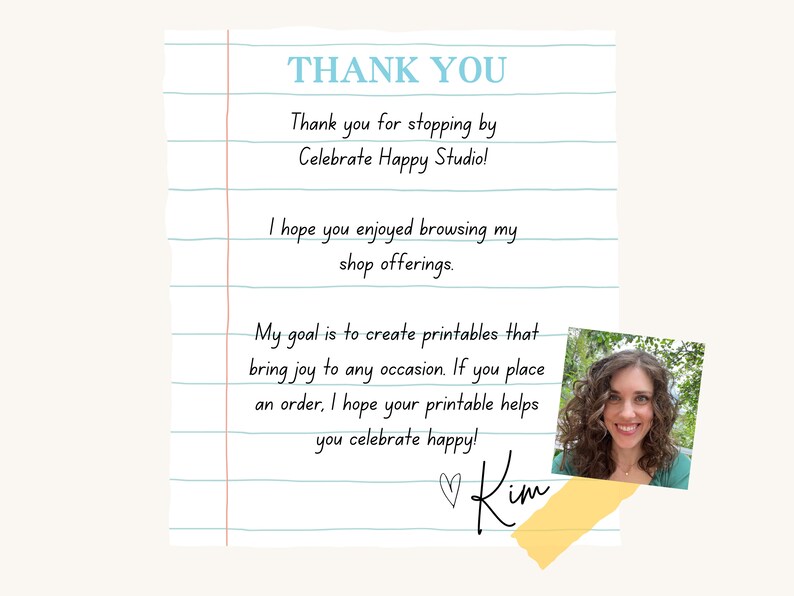 THANK YOU
Thank you for stopping by
Celebrate Happy Studio!
I hope you enjoyed browsing my
shop offerings.
My goal is to create printables that
bring joy to any occasion. If you place
an order, I hope your printable helps
you celebrate happy!
Kim